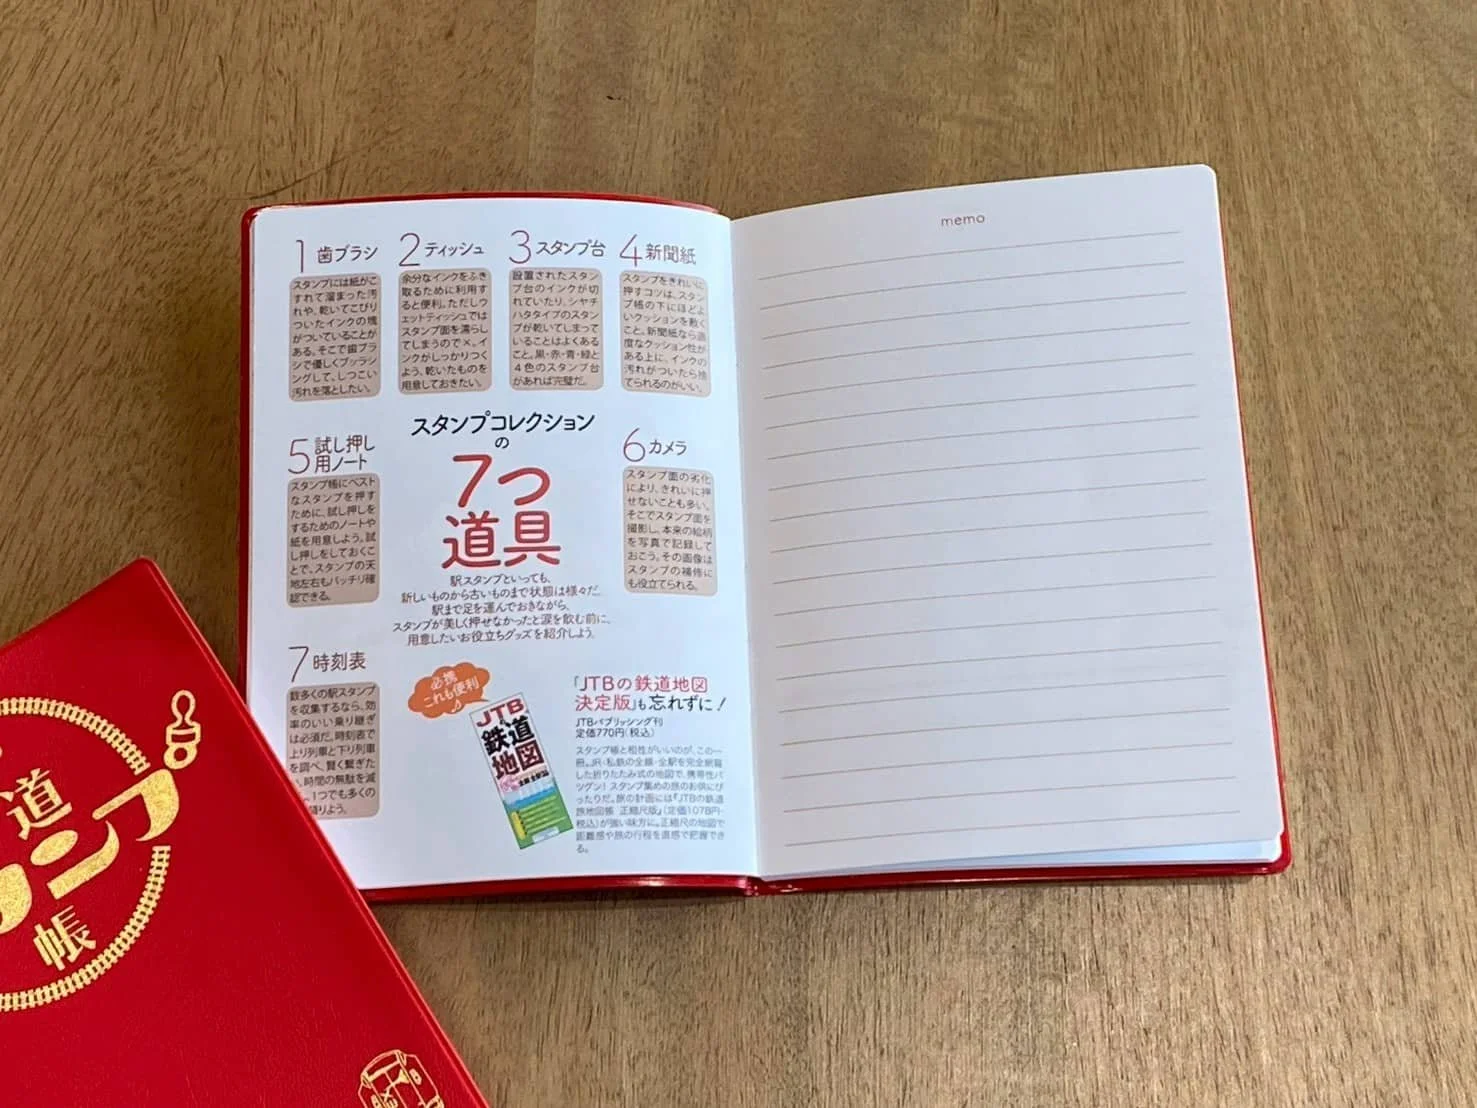 1 歯ブラシ
スタンプには紙がこ
すれて溜まった汚
れや、乾いてこびり
ついたインクの塊
がついていることが
ある。そこで歯ブラ
シで優しくブラッシ
ングして、しつこい
汚れを落としたい。
2 ティッシュ
余分なインクをふき
取るために利用す
ると便利。ただしウ
ェットティッシュでは
スタンプ面を濡らし
てしまうので×。イ
ンクがしっかりつく
よう、乾いたものを
用意しておきたい。
3 スタンプ台
設置されたスタン
プ台のインクが切
れていたり、シヤチ
ハタタイプのスタン
プが乾いてしまって
いることはよくある
こと。黒・赤・青・緑と
4色のスタンプ台
があれば完璧だ。
4 新聞紙
スタンプをきれいに
押すコツは、スタン
プ帳の下にほどよ
いクッションを敷く
こと。新聞紙なら適
度なクッション性が
ある上に、インクの
汚れがついたら捨
てられるのがいい。
スタンプコレクション
の
7つ
道具
駅スタンプといっても、
新しいものから古いものまで状態は様々だ。
駅まで足を運んでおきながら、
スタンプが美しく押せなかったと涙を飲む前に、
用意したいお役立ちグッズを紹介しよう。
5 試し押し
用ノート
スタンプ帳にベスト
なスタンプを押す
ために、試し押しを
するためのノートや
紙を用意しよう。試
し押しをしておくこ
とで、スタンプの天
地左右もバッチリ確
認できる。
6 カメラ
スタンプ面の劣化
により、きれいに押
せないことも多い。
そこでスタンプ面を
撮影し、本来の絵柄
を写真で記録して
おこう。その画像は
スタンプの補修に
も役立てられる。
7 時刻表
数多くの駅スタンプ
を収集するなら、効
率のいい乗り継ぎ
は必須だ。時刻表で
上り列車と下り列車
を調べ、賢く繋ぎた
い。時間の無駄を減
、1つでも多くの
りよう。
必携
これも便利♪
JTBの
鉄道
地図
「JTBの鉄道地図
決定版」も忘れずに!
JTBパブリッシング刊
定価770円(税込)
スタンプ帳と相性がいいのが、この一
冊。JR・私鉄の全線・全駅を完全網羅
した折りたたみ式の地図で、携帯性バ
ツグン!スタンプ集めの旅のお供にぴ
ったりだ。旅の計画には『JTBの鉄道
旅地図帳 正縮尺版』(定価1078円・
税込)が強い味方に。正縮尺の地図で
距離感や旅の行程を直感で把握でき
る。
memo
道
ンプ
帳